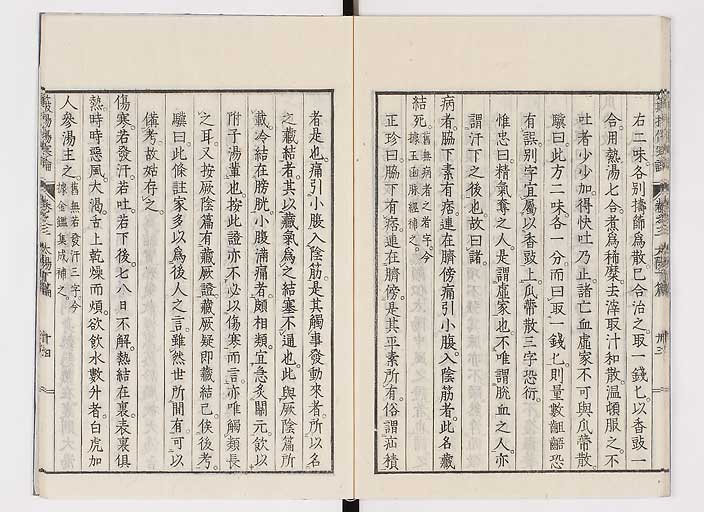 右二味各別擣篩爲散已合治之取一錢匕以香豉一
合用熱湯七合煮爲稀糜去滓取汁和散溫頓服之不
吐者少少加得快吐乃止諸亡血虛家不可與瓜蔕散
驥曰此方二味各一分而曰取一錢匕則量數齟齬恐
有誤別字宜屬以香豉上瓜蔕散三字恐衍
惟忠曰精氣奪之人是謂虛家也不唯謂脫血之人亦
謂汗下之後也故曰諸
病者脇下素有痞連在臍傍痛引小腹入陰筋者此名藏
結死舊無病者之者字今據玉函脉經補之
正珍曰脇下有痞連在臍傍是其平素所有俗謂疝積
者是也痛引小腹入陰筋是其觸事發動來者所以名
之藏結者其以藏氣爲之結塞不通也此與厥陰篇所
載冷結在膀胱小腹滿痛者頗相類宜急灸關元飲以
附子湯輩也按此證亦不必以傷寒而言亦唯觸類長
之耳又按厥陰篇有藏厥證藏厥疑即藏結已俟後考
驥曰此條註家多以爲後人之言雖然世所間有可以
備考故姑存之
傷寒若發汗若吐若下後七八日不解熱結在裏表裏俱
熱時時惡風大渴舌上乾燥而煩欲飲水數升者白虎加
人參湯主之舊無若發汗三字今據金鑑集成補之